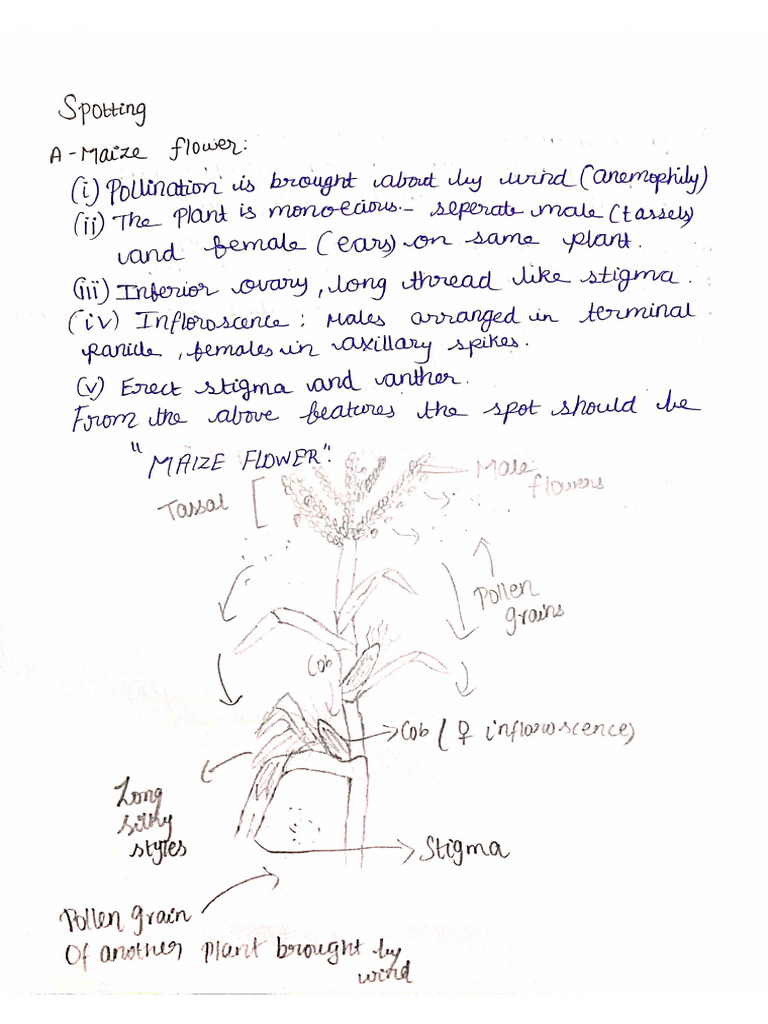 Spotting
A - Maize flower:
(i) Pollination is brought about by wind (anemophily)
(ii) The Plant is monoecious - seperate male (tassels)
and female (ears) on same plant.
(iii) Inferior ovary, long thread like stigma.
(iv) Infloroscence : Males arranged in terminal
panicle, females in axillary spikes.
(v) Erect stigma and anther.
From the above features the spot should be
"MAIZE FLOWER".
Tassal
Male
flowers
Pollen
grains
Cob
Cob (♀ inflorowscence)
Long
silky
styles
Stigma
Pollen grain
Of another plant brought by
wind